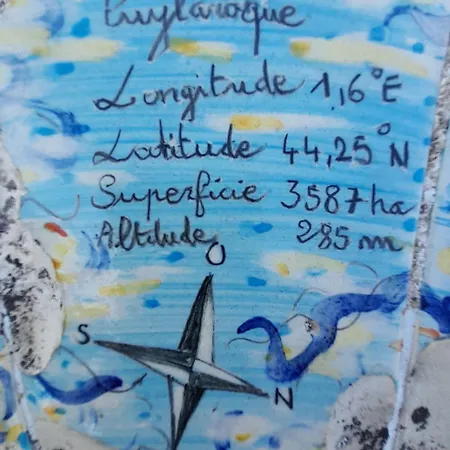 Puylaroque
Longitude 1,6°E
Latitude 44,25°N
Superficie 3587 ha
Altitude 285 m
O
S
N